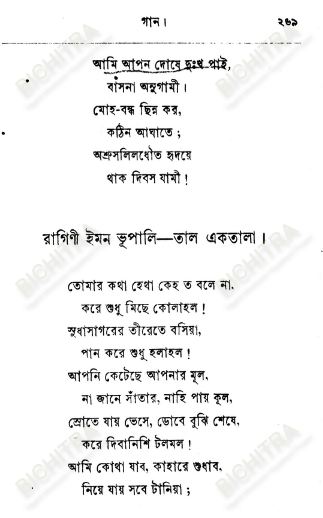 গান।
২৬৯
আমি আপন দোষে দুঃখ পাই,
বাসনা অনুগামী।
মোহ-বন্ধ ছিন্ন কর,
কঠিন আঘাতে;
অশ্রুসলিলধৌত হৃদয়ে
থাক দিবস যামী!
রাগিণী ইমন ভূপালি—তাল একতালা।
তোমার কথা হেথা কেহ ত বলে না,
করে শুধু মিছে কোলাহল!
সুধাসাগরের তীরেতে বসিয়া,
পান করে শুধু হলাহল!
আপনি কেটেছে আপনার মূল,
না জানে সাঁতার, নাহি পায় কূল,
স্রোতে যায় ভেসে, ডোবে বুঝি শেষে,
করে দিবানিশি টলমল!
আমি কোথা যাব, কাহারে শুধাব,
নিয়ে যায় সবে টানিয়া;
BICHITRA
BICHITRA
BICHITRA
BICHITRA
BICHITRA
BICHITRA